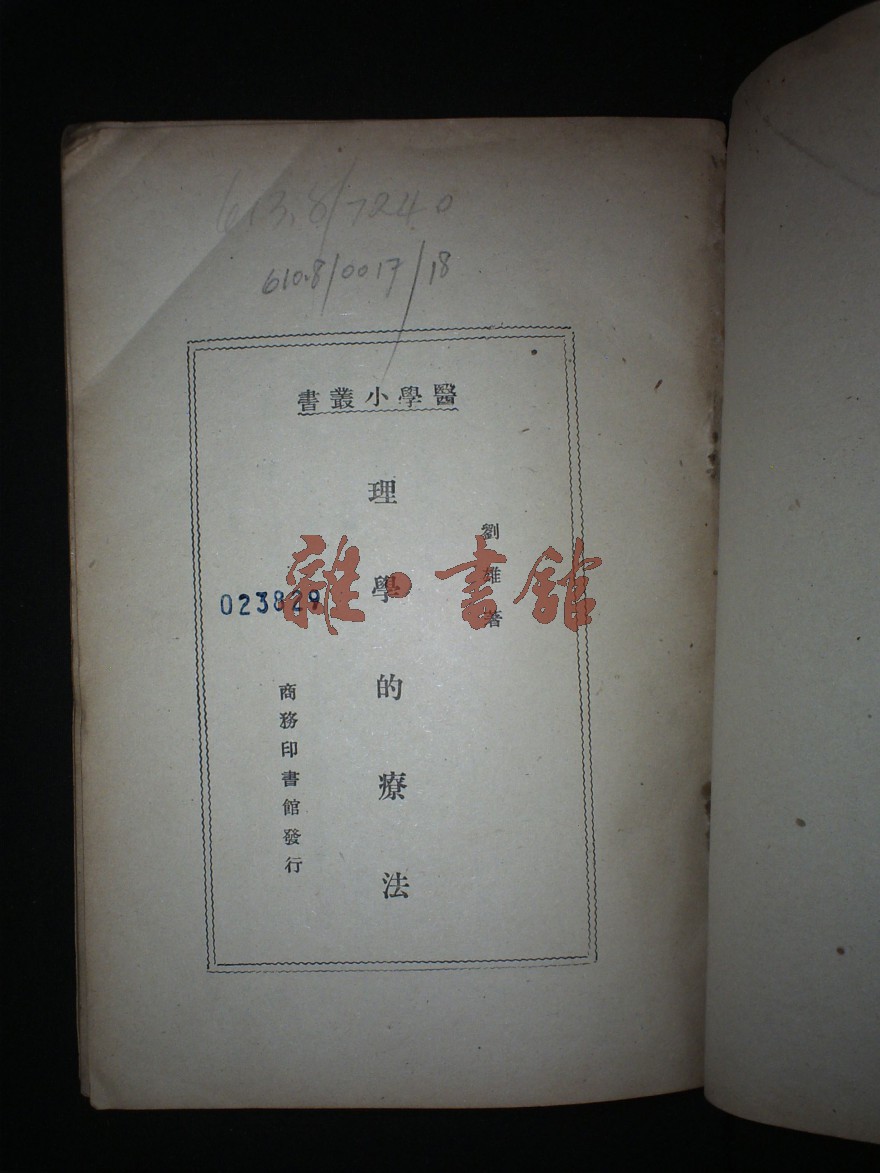 613.8/7240
610.8/0017/18
醫學小叢書
劉雄著
理學的療法
商務印書館發行
023829
雜·書館